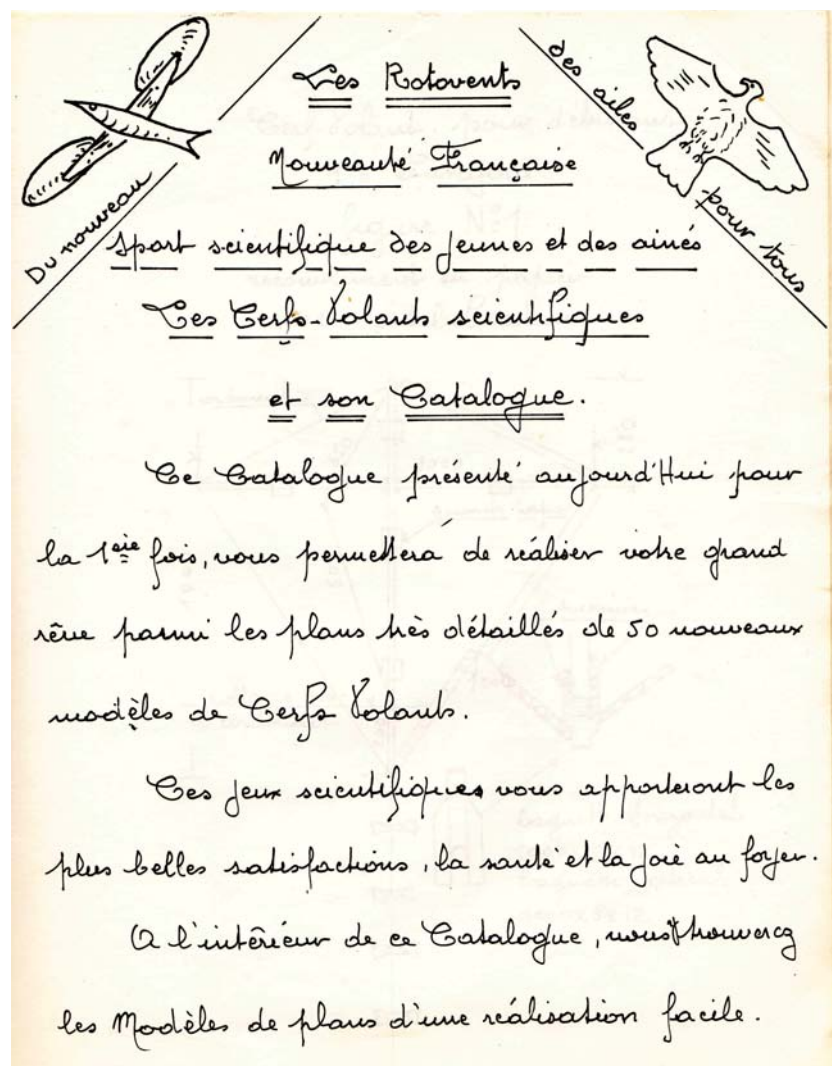 Les Rotovents
Nouveauté Française
Du nouveau
des ailes
pour tous
Sport scientifique des Jeunes et des ainés
Les Cerfs-Volants scientifiques
et son Catalogue.
Ce Catalogue présenté aujourd'Hui pour
la 1ère fois, vous permettera de réaliser votre grand
rêve parmi les plans très détaillés de 50 nouveaux
modèles de Cerfs Volants.
Ces Jeux scientifiques vous apporteront les
plus belles satisfactions, la santé et la Joie au foyer.
A l'intérieur de ce Catalogue, vous trouverez
les Modèles de plans d'une réalisation facile.